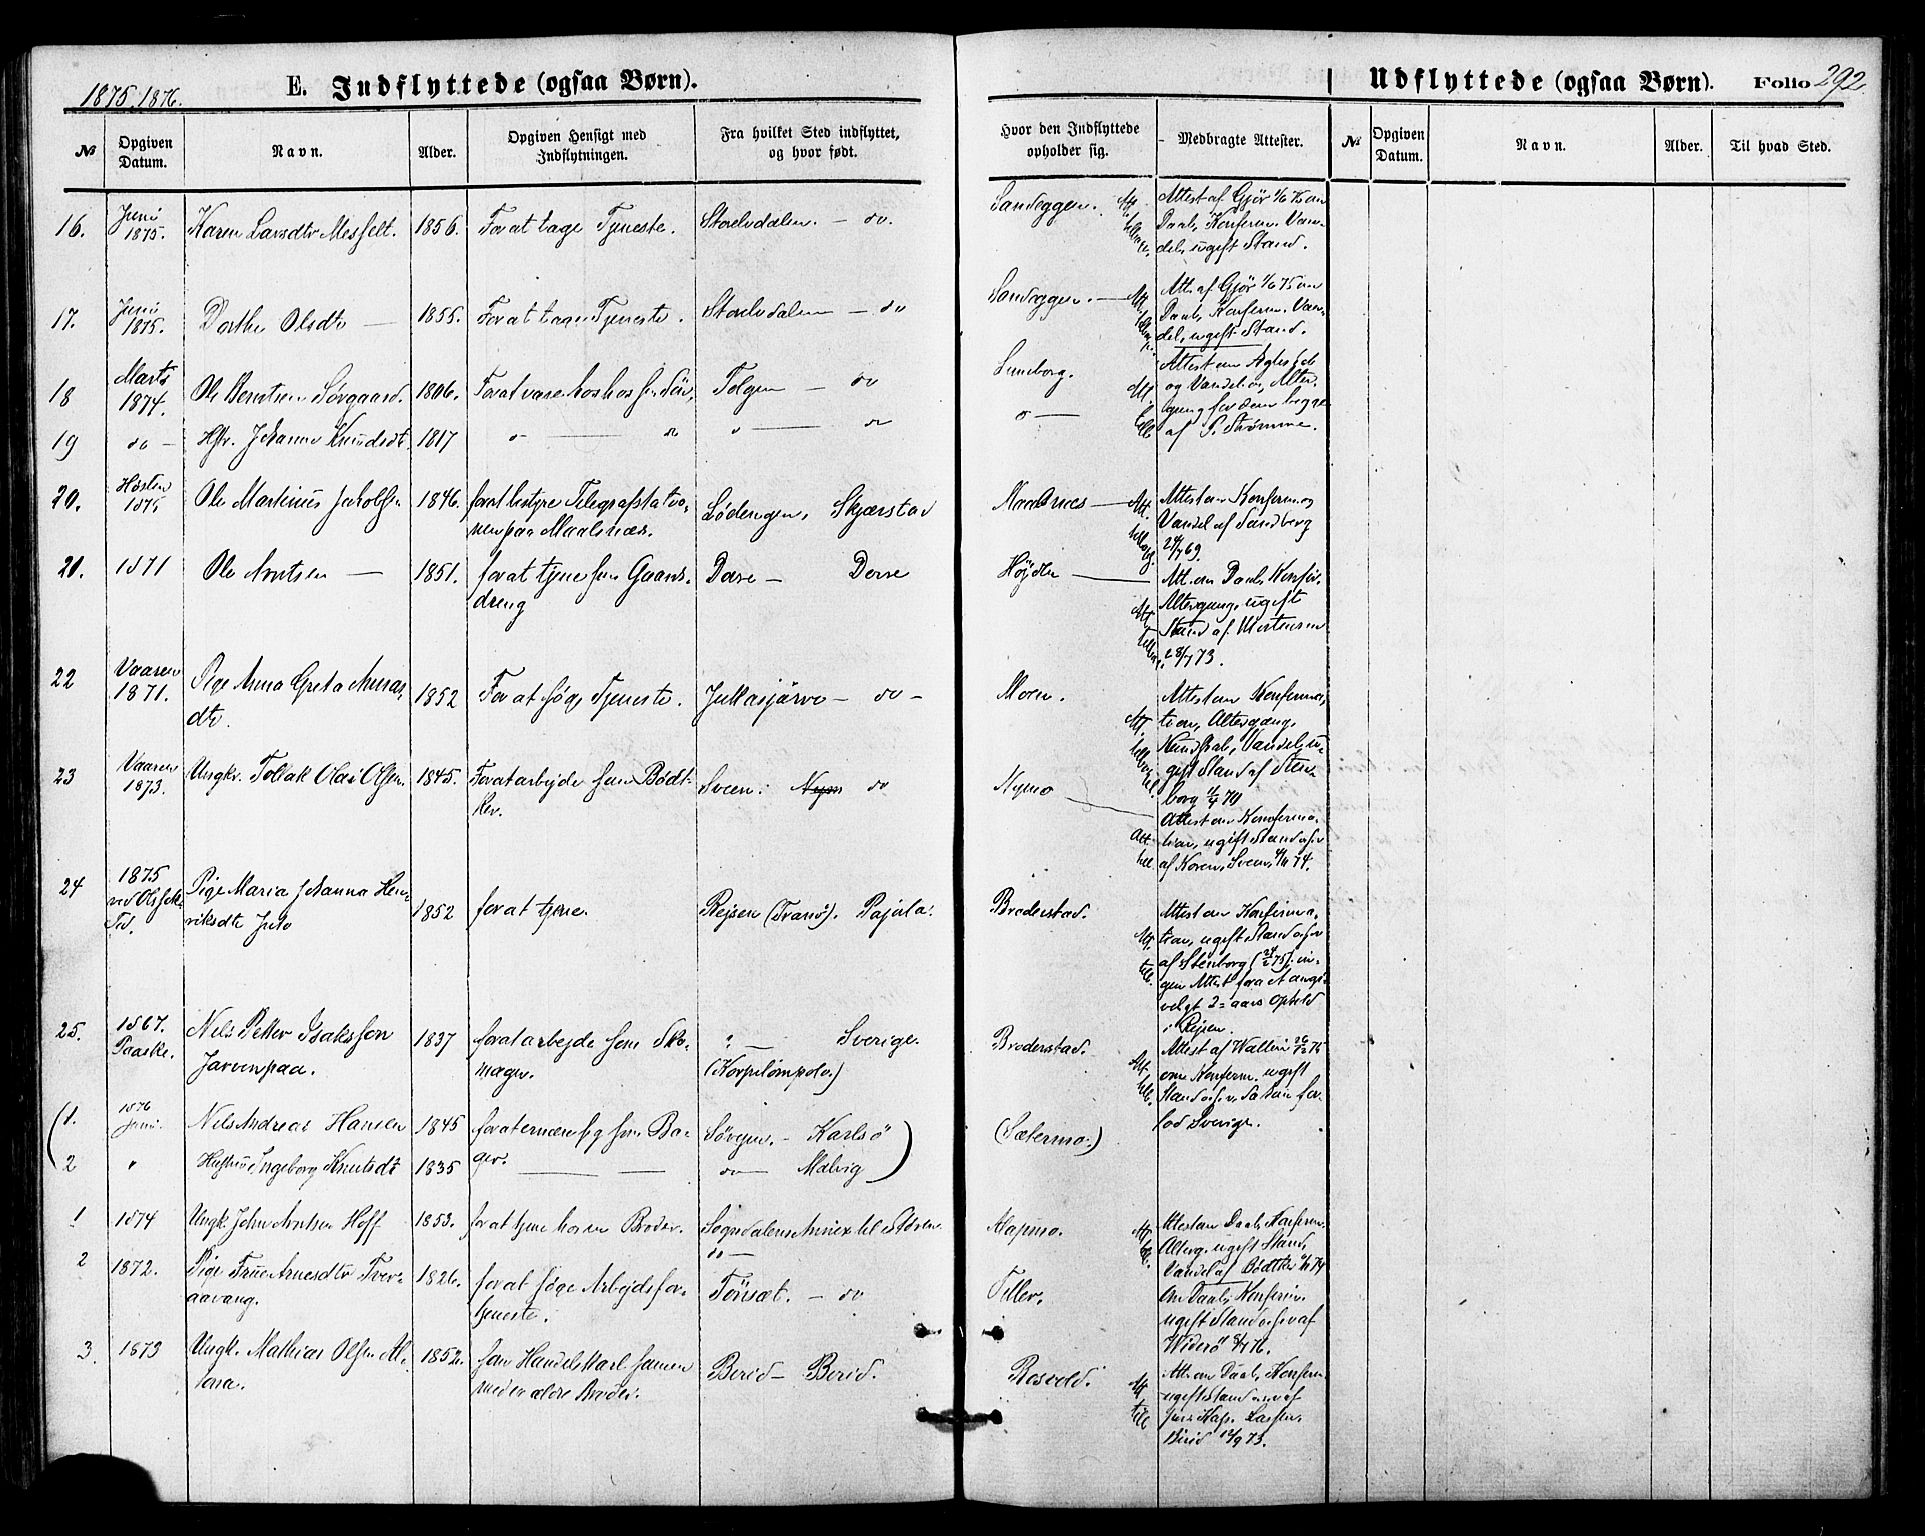 1875, 1876.
E. Indflyttede (ogsaa Børn).
Udflyttede (ogsaa Børn). Folio 292.
№ Opgiven Datum. Navn. Alder. Opgiven Hensigt med Indflytningen. Fra hvilket Sted indflyttet, og hvor født. Hvor den Indflyttede opholder sig. Medbragte Attester. № Opgiven Datum. Navn. Alder. Til hvad Sted.
16. Juni 1875. Karen Larsdtr Messelt. 1856. For at tage Tjeneste. Storelvdalen. – do. Sandeggen. Attest af Gjør 1/6 75 om
Daab, Konferm. Van-
del, ugift Stand.
17. Juni 1875. Dorthe Olsdtr — 1855. For at tage Tjeneste. Storelvdalen – do Sandeggen. — Att. af Gjør 1/6 75 om
Daab, Konferm. Van-
del, ugift Stand.
18 Marts 1874. Ole Berntsen Sørgaard. 1806. For at være hos Tolgen – do Lundberg. Attest om
og Vandel
gang for dem begge
19 do – Hstr. Johanne Knudsdt. 1817 " — " " — do " — af P. Strømme.
20. Høsten 1875 Ole Martinus Jakobsen 1846. for at bestyre Telegrafstatio-
nen paa Maalsnæs. Lødengen, Skjærstad Maalsnes — Attest om Konferm og
Vandel af Sandberg
69.
21. 1871 Ole Arntsen — 1851. for at tjene som Gaards-
dreng Dovre – Dovre Højden — Att. om Daab, Konfir.
Altergang, ugift
Stand af Mortensen
28/7 73.
22 Vaaren 1871. Pige Anna Greta Annas-
dtr. 1852 For at søge Tjeneste. Jukkasjärvi – do – Moen. Attest om Konferma-
tion, Altergang,
Kundskab, Vandel, u-
gift Stand af Sten-
borg 70
23 Vaaren 1873. Ungkr. Tollak Olai Olsen. 1845. For at arbejde som Bødt-
ker. Sveen. do Nymo — Attest om Konferma-
tion, ugift Stand
af Koren, Sveen, 74.
24 1875 Pige Maria Johanna Hen-
riksdtr 1852 for at tjene. Rejsen (Tranø). Pajala. Broderstad. Attest om Konferma-
tion, ugift Stand
af Stenborg 75; in-
gen Attest fra et angi-
velgt 2-aars Ophold
i Rejsen.
25. 1867. Paaske. Nils Petter Isaksson
Jarvenpaa. 1837 for at arbejde som Sko-
mager. " — Sverige.
(Korpilompolo.) Broderstad. Attest af Wallin 75
om Konferm. ugift
Stand da han for-
lod Sverige.
(1. 1876 Juni. Nils Andreas Hansen 1845 for at ernære sig som Ba-
ger. Sørejen. – Karlsø (Sætermo.)
2 " Hustru Ingeborg Knutsdt 1835 — do — Malvig)
1 1874 Ungk. John Arntsen Hoff 1853. for at tjene hos en Broder. Sogndalens Annex til Støren
do — Alapmo. Attest om Daab, Konferm.
Alterg. ugift Stand,
Vandel af Bødtker 74
2 1872. Pige Arnesdtr Tver-
aavang. 1826. for at søge Arbejdsfor-
tjeneste. Tönsæt. – do Tiller. Om Daab, Konferm.
ugift Stand af
Widerø 76.
3. 1873 Ungk. Mathias Olsen Al-
stara. 1852. som Handelskarl sammen
med en ældre Broder. Berid – Berid. Rosvold. Att. om Daab, Konferm
ugift Stand af
Birid 12/9 73.